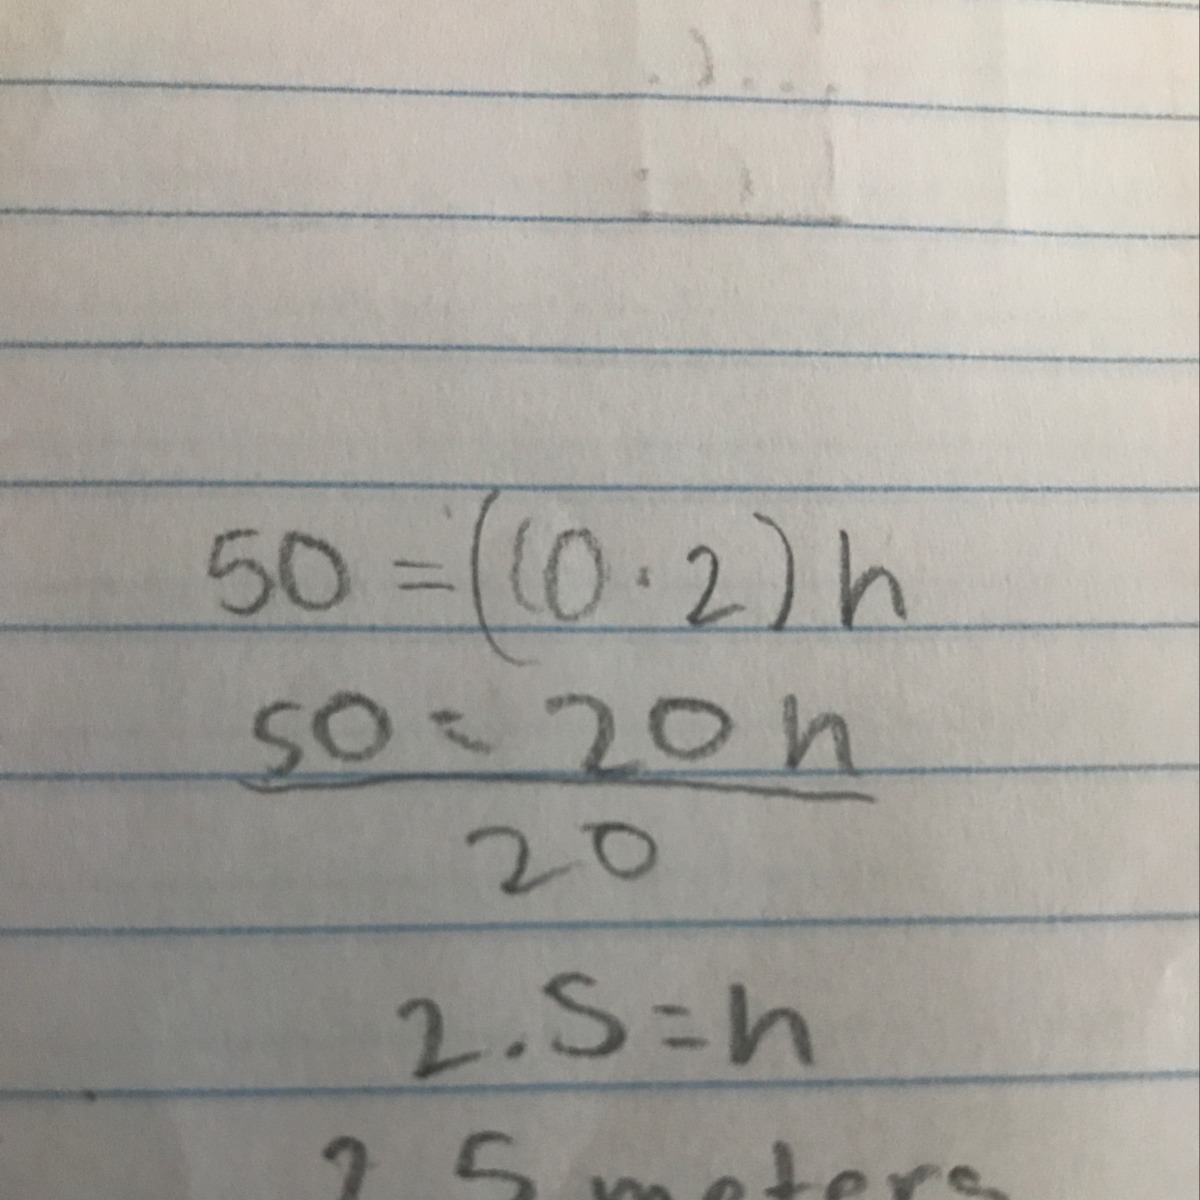 50 = (10 · 2) h
50 = 20 h
20
2.5 = h
2.5 meters